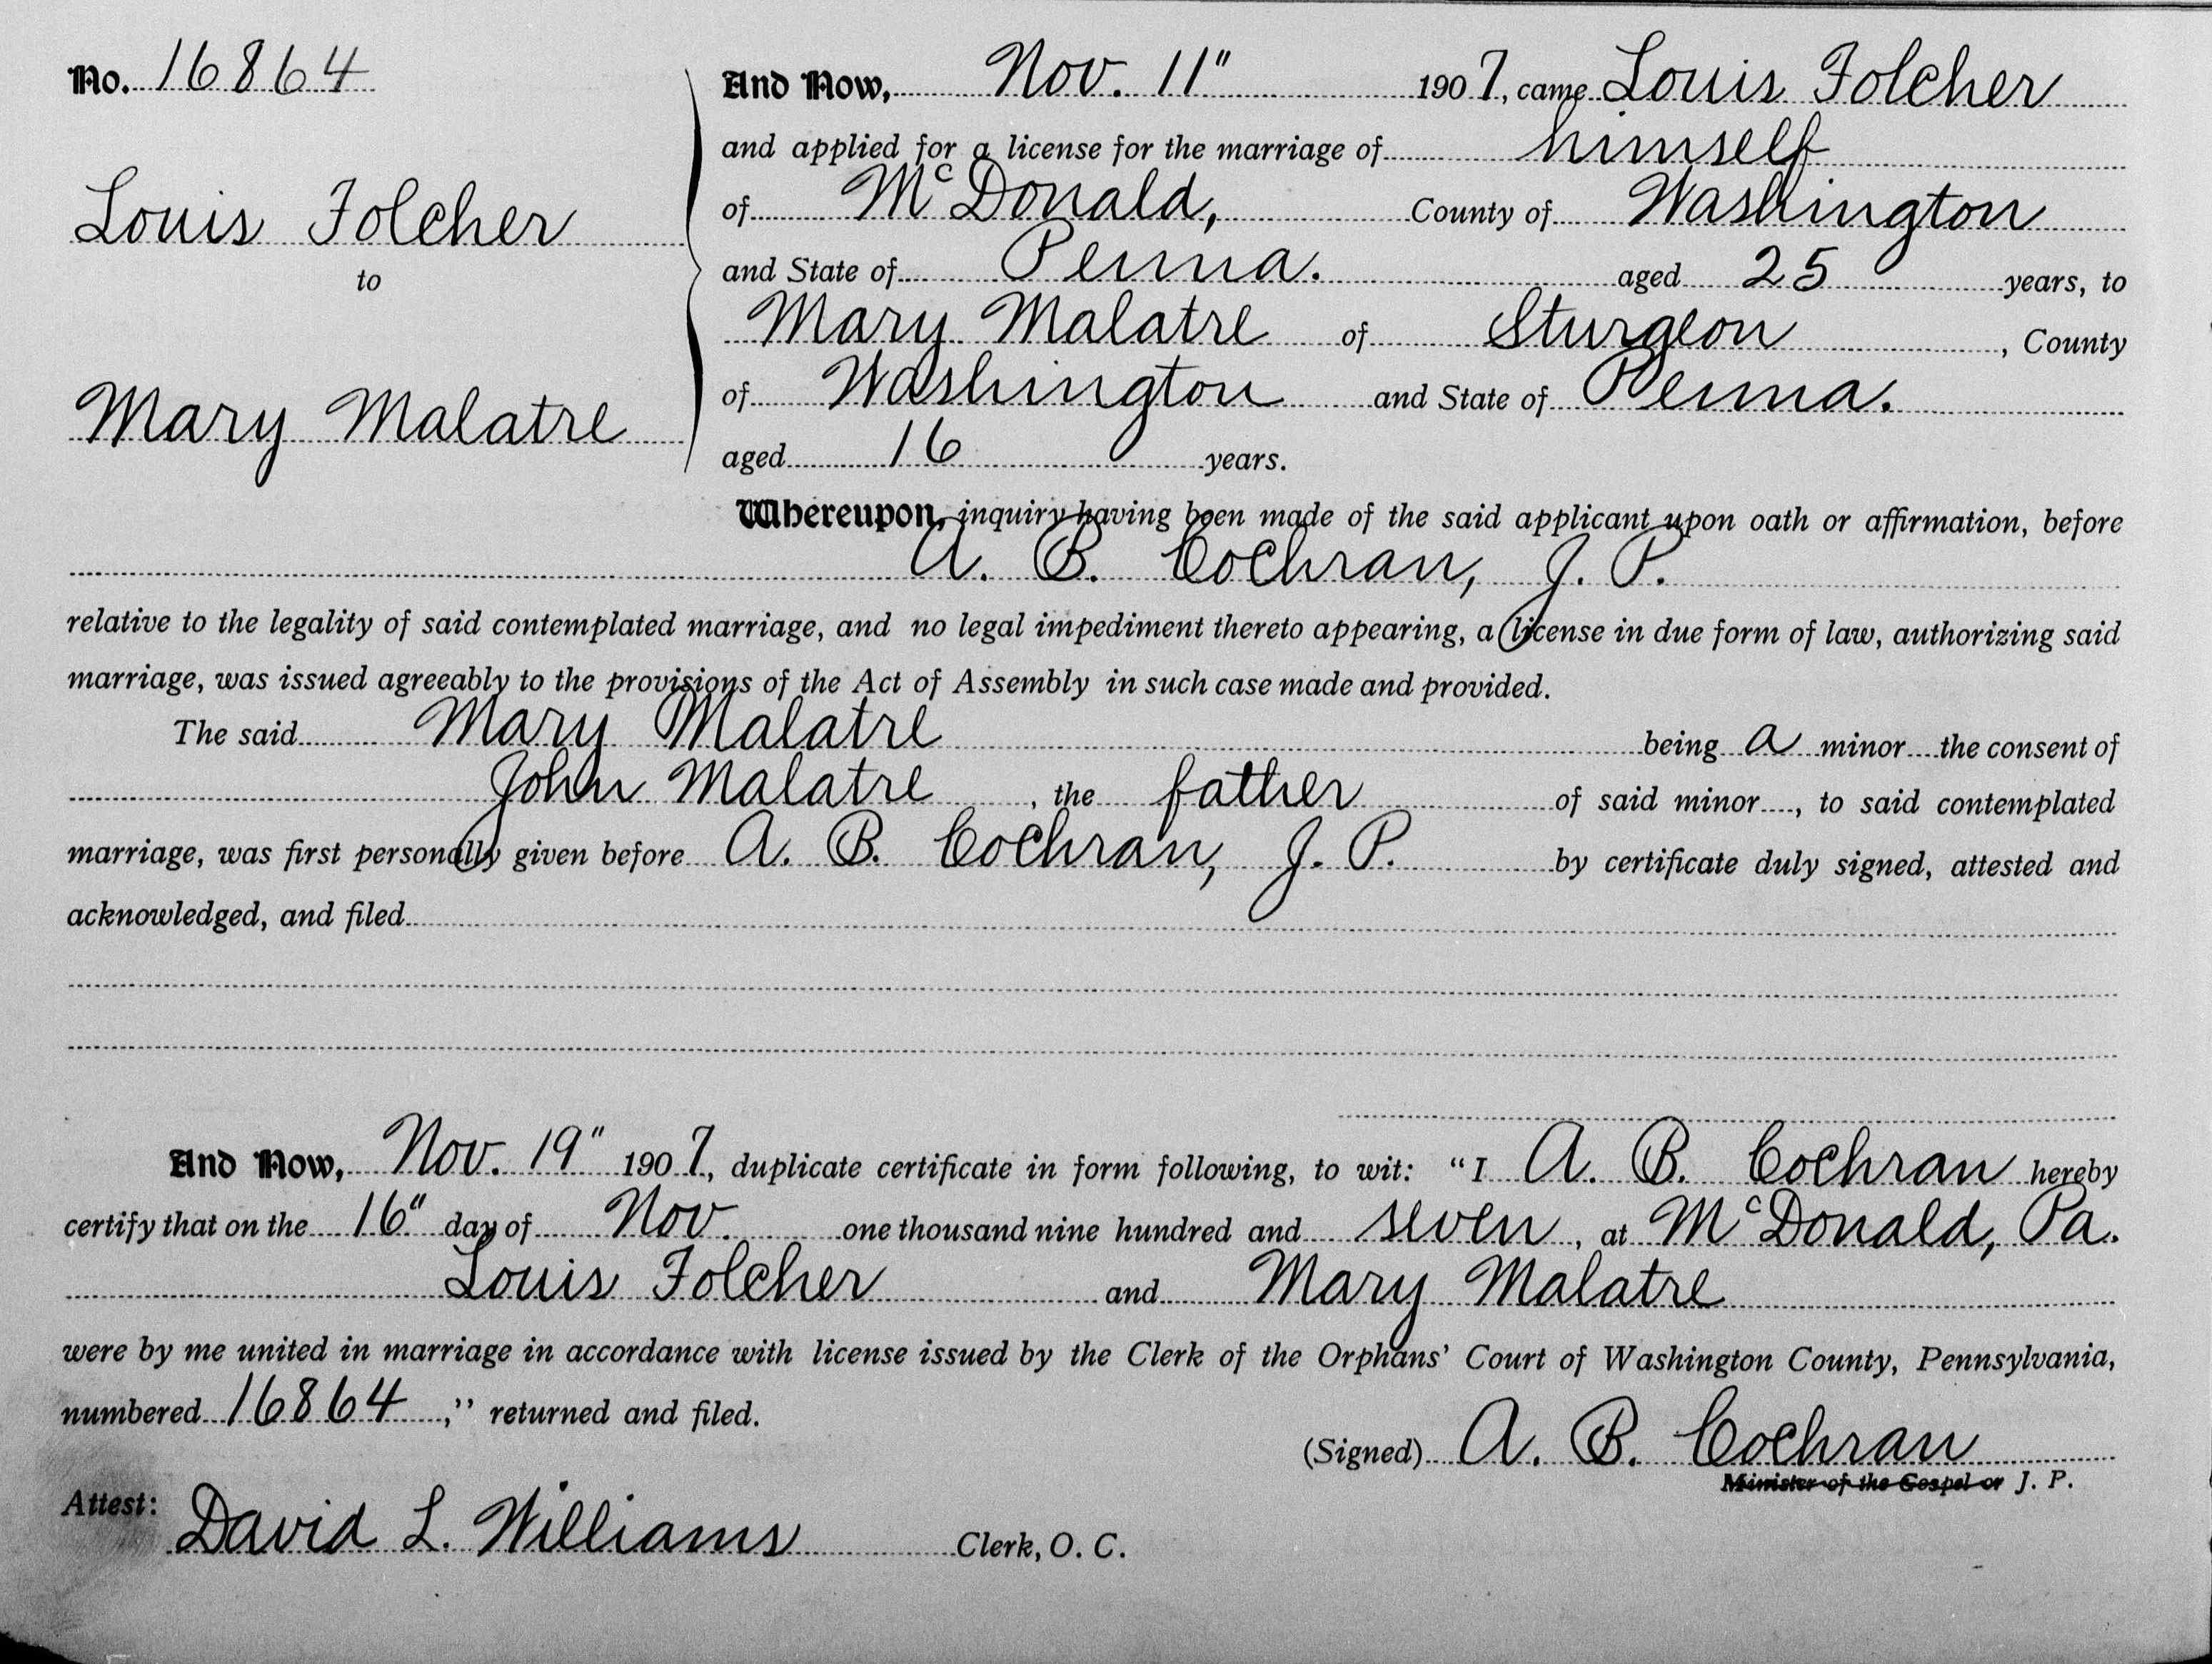 No. 16864
Louis Folcher
to
Mary Malatre
And Now, Nov. 11" 1907, came Louis Folcher
and applied for a license for the marriage of himself
of McDonald, County of Washington
and State of Penna. aged 25 years, to
Mary Malatre of Sturgeon , County
of Washington and State of Penna.
aged 16 years.
Whereupon, inquiry having been made of the said applicant upon oath or affirmation, before
A. B. Cochran, J. P.
relative to the legality of said contemplated marriage, and no legal impediment thereto appearing, a license in due form of law, authorizing said
marriage, was issued agreeably to the provisions of the Act of Assembly in such case made and provided.
The said Mary Malatre being a minor the consent of
John Malatre , the father of said minor , to said contemplated
marriage, was first personally given before A. B. Cochran, J. P. by certificate duly signed, attested and
acknowledged, and filed
And Now, Nov. 19" 1907, duplicate certificate in form following, to wit: "I A. B. Cochran hereby
certify that on the 16" day of Nov. one thousand nine hundred and seven , at McDonald, Pa.
Louis Folcher and Mary Malatre
were by me united in marriage in accordance with license issued by the Clerk of the Orphans' Court of Washington County, Pennsylvania,
numbered 16864 ," returned and filed.
(Signed) A. B. Cochran
Minister of the Gospel or J. P.
Attest: David L. Williams Clerk, O. C.